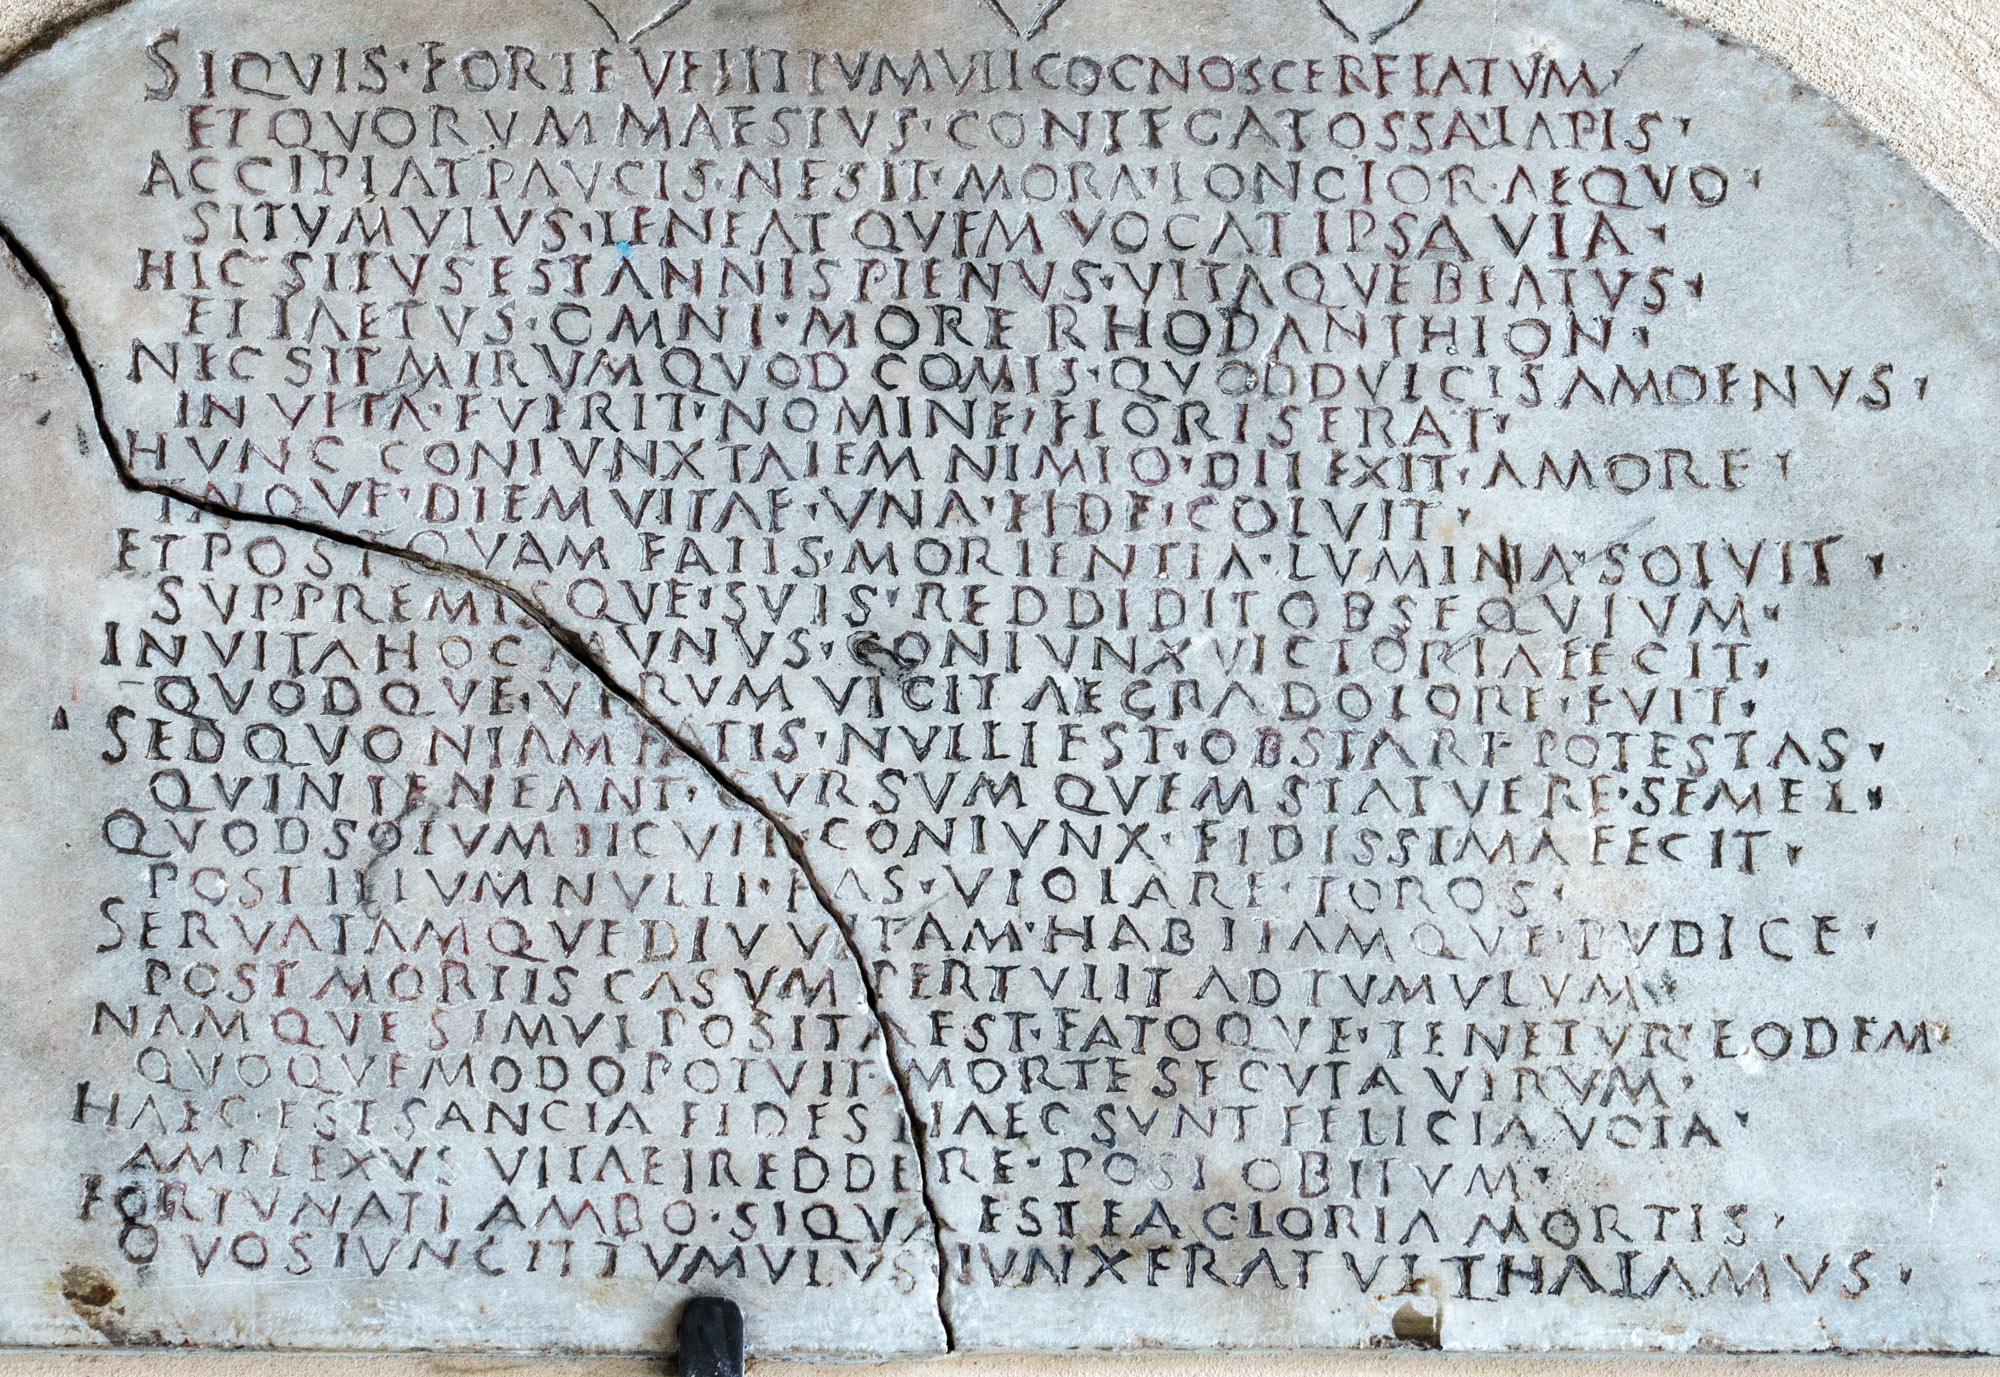 SIQVIS · FORTE VELIT TVMVLI COGNOSCERE LATVM
ET QVORVM MAESTVS · CONTEGAT OSSA · LAPIS ·
ACCIPIAT PAVCIS · NE SIT · MORA · LONGIOR AEQVO ·
SI TVMVLVS · TENEAT QVEM VOCAT IPSA VIA ·
HIC SITVS EST ANNIS PLENVS · VITAQVE BEATVS ·
ET LAETVS · OMNI · MORE RHODANTHION ·
NEC SIT MIRVM QVOD COMIS · QVOD DVLCIS AMOENVS ·
IN VITA · FVERIT · NOMINE · FLORIS ERAT ·
HVNC CONIVNX TALEM NIMIO · DILEXIT · AMORE ·
INQVE · DIEM VITAE · VNA · FIDE · COLVIT ·
ET POSTQVAM FALLIS · MORIENTIA · LVMINA · SOLVIT ·
SVPPREMISQVE · SVIS · REDDIDIT OBSEQVIVM ·
IN VITA HOC MVNVS · CONIVNX VICTORIA FECIT ·
QVODQVE · VIRVM VICIT AEGRA DOLORE · FVIT ·
SED QVONIAM FATIS · NVLLI EST · OBSTARE POTESTAS ·
QVIN TENEANT · CVRSVM QVEM STATVERE · SEMEL ·
QVOD SOLVM LICVIT · CONIVNX · FIDISSIMA FECIT ·
POST ILLVM NVLLI · FAS · VIOLARE · TOROS ·
SERVATAMQVE DIV VITAM · HABITAMQVE · PVDICE ·
POST MORTIS CASVM PERTVLIT AD TVMVLVM ·
NAMQVE SIMVL POSITA EST · FATOQVE · TENETVR · EODEM ·
QVOQVE MODO POTVIT · MORTE SECVTA VIRVM ·
HAEC · EST SANCTA FIDES HAEC SVNT FELICIA VOTA ·
AMPLEXVS VITAE REDDERE · POST OBITVM ·
FORTVNATI AMBO · SI QVA EST EA GLORIA MORTIS ·
QVOS IVNGIT TVMVLVS IVNXERAT VT THALAMVS ·